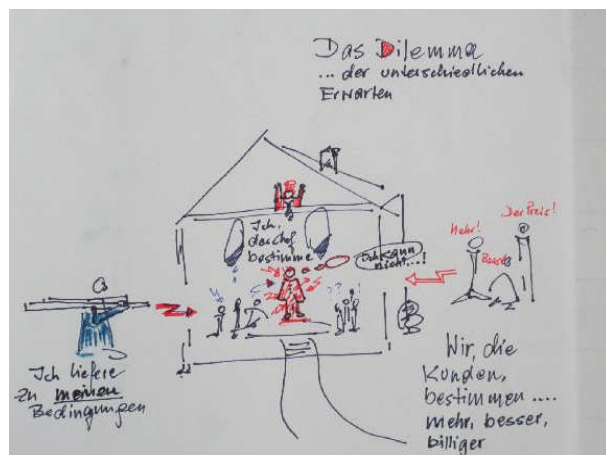 Das Dilemma
... der unterschiedlichen
Erwarten
Ich,
der Chef
bestimme
nicht...!
? ?
Mehr!
Der Preis!
Ich liefere
zu meinen
Bedingungen
Wir, die
Kunden,
bestimmen ....
mehr, besser,
billiger